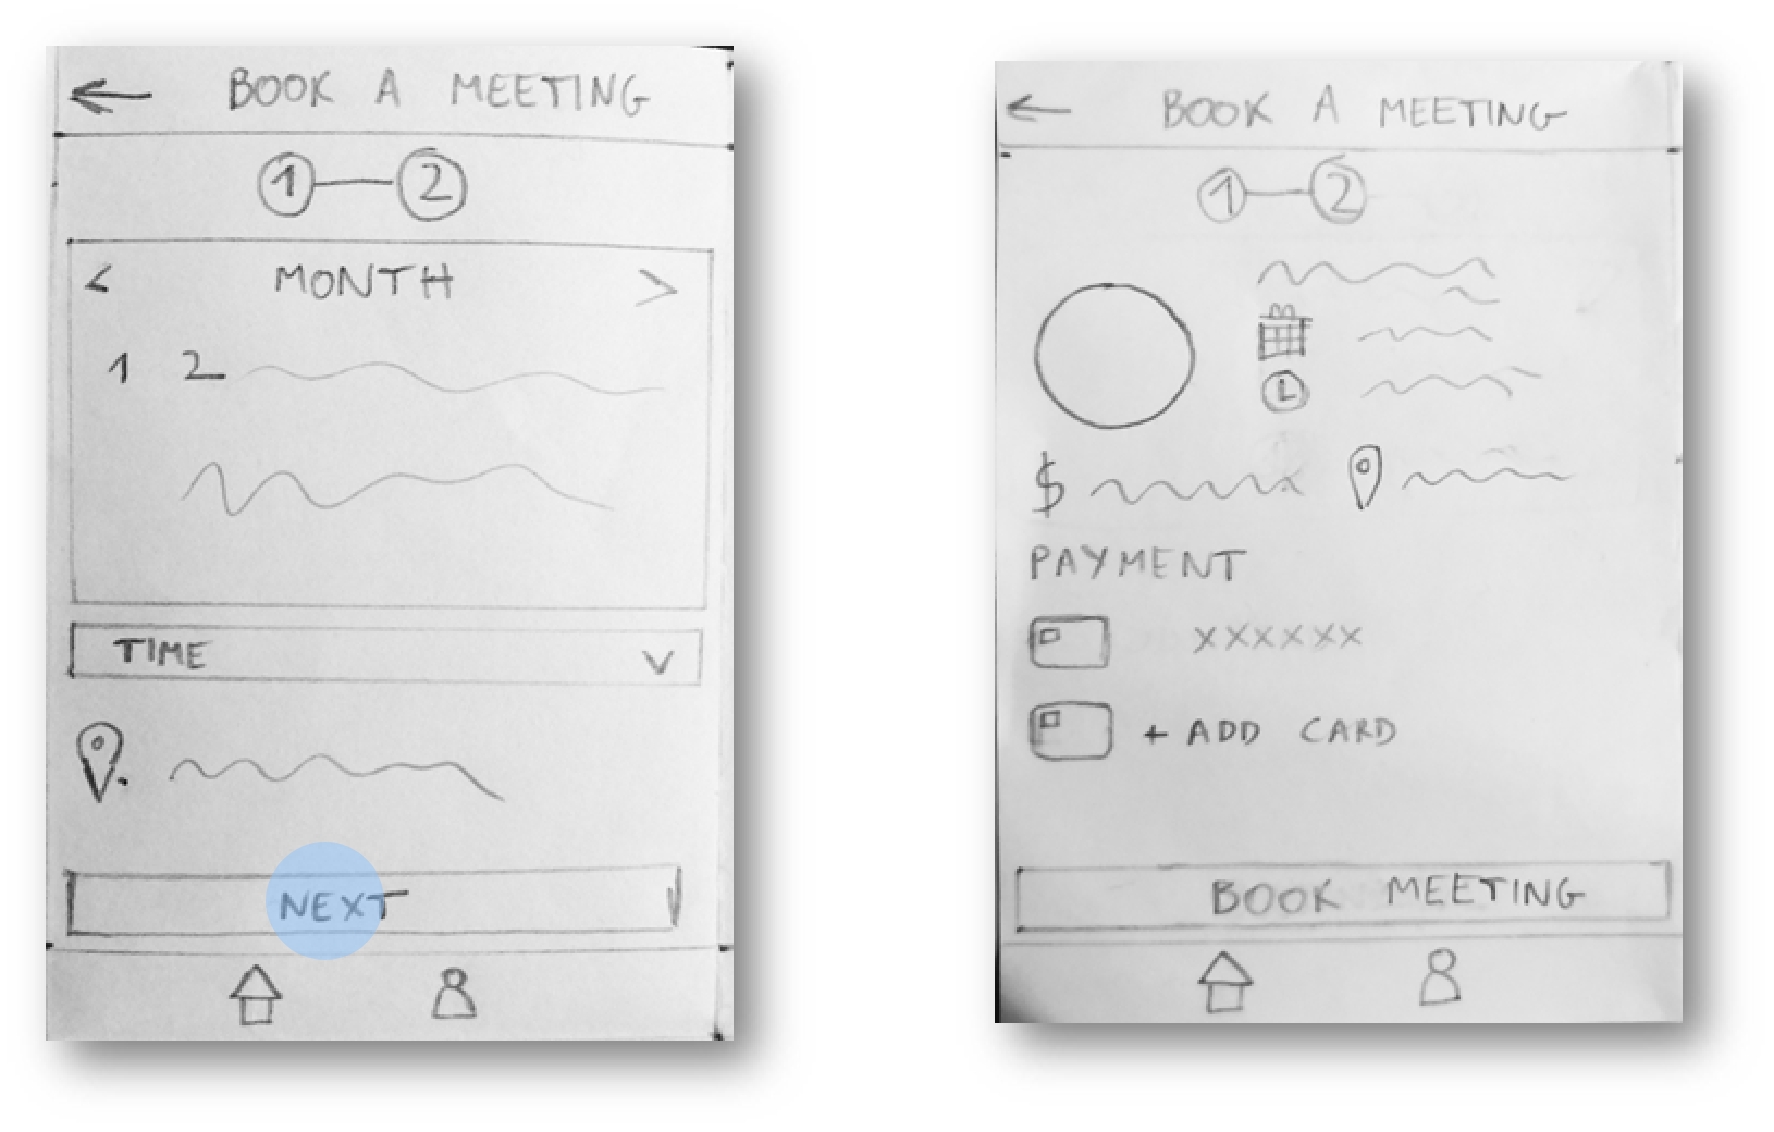 BOOK A MEETING
1 2
< MONTH >
1 2
TIME
NEXT
BOOK A MEETING
1 2
$
PAYMENT
XXXXXX
+ ADD CARD
BOOK MEETING